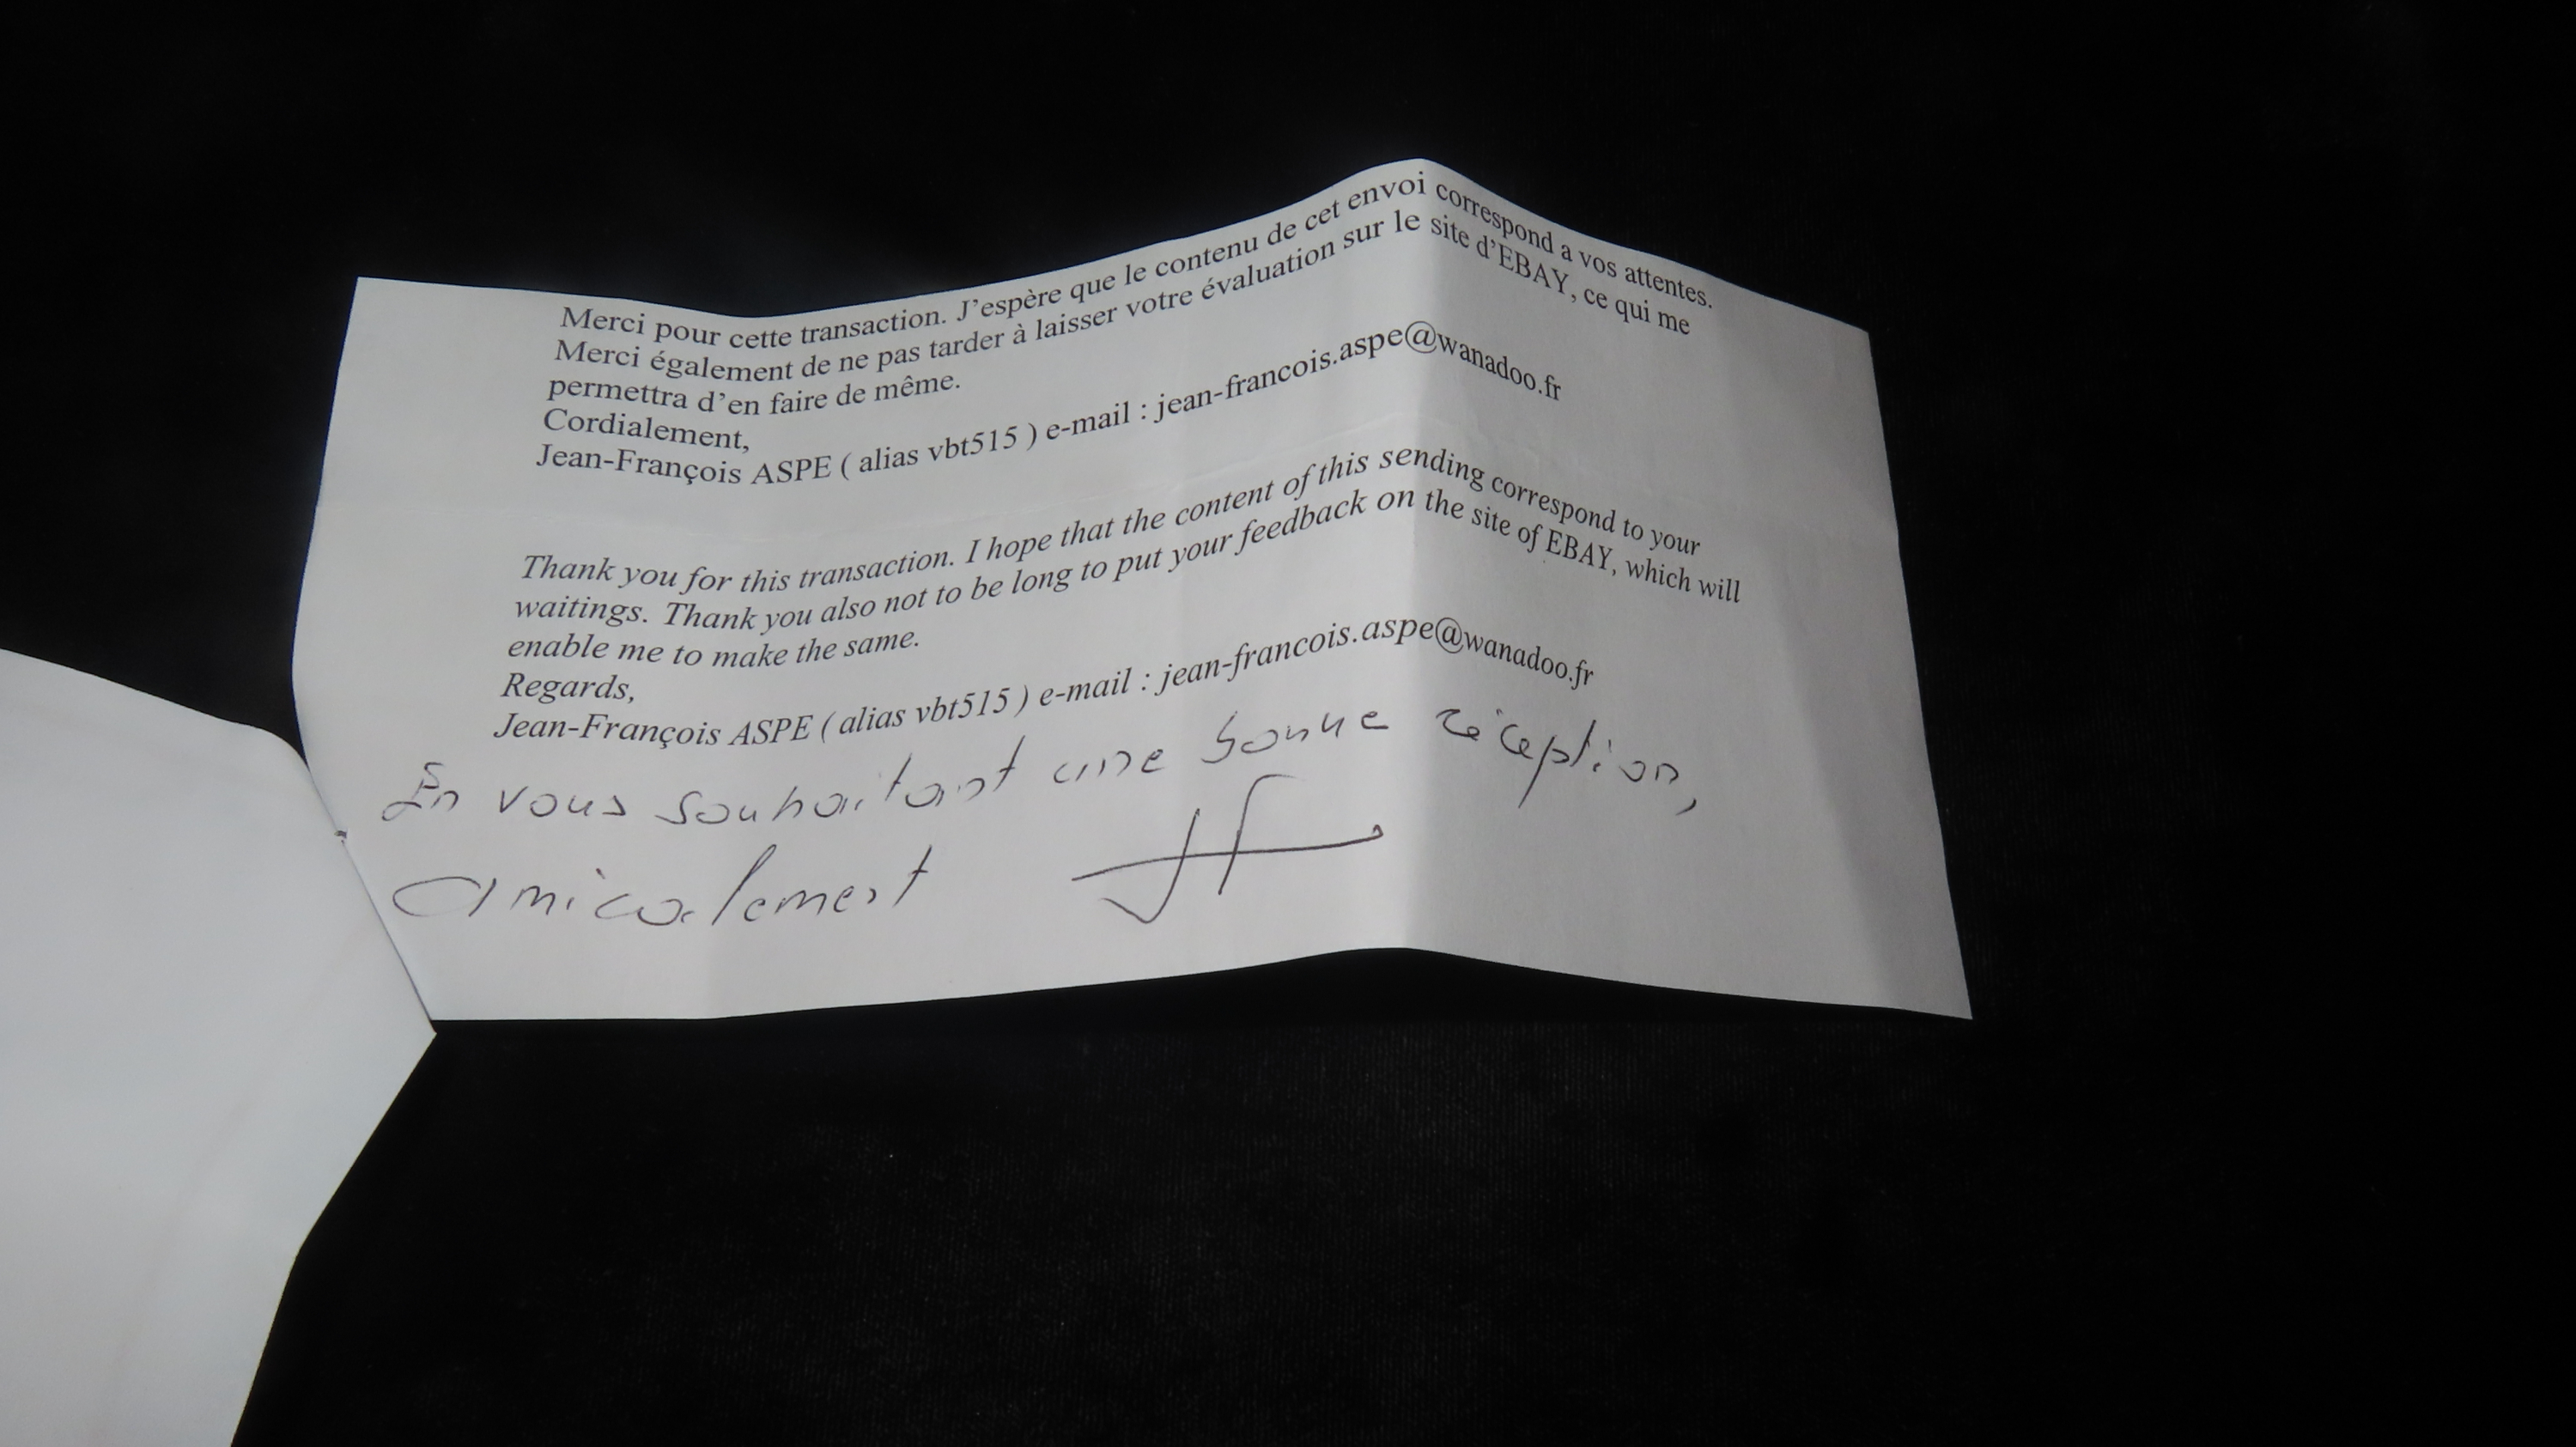 Merci pour cette transaction. J’espère que le contenu de cet envoi correspond a vos attentes.
Merci également de ne pas tarder à laisser votre évaluation sur le site d’EBAY, ce qui me
permettra d’en faire de même.
Cordialement,
Jean-François ASPE ( alias vbt515 ) e-mail : jean-francois.aspe@wanadoo.fr
Thank you for this transaction. I hope that the content of this sending correspond to your
waitings. Thank you also not to be long to put your feedback on the site of EBAY, which will
enable me to make the same.
Regards,
Jean-François ASPE ( alias vbt515 ) e-mail : jean-francois.aspe@wanadoo.fr
En vous souhaitant une bonne réception,
amicalement JF